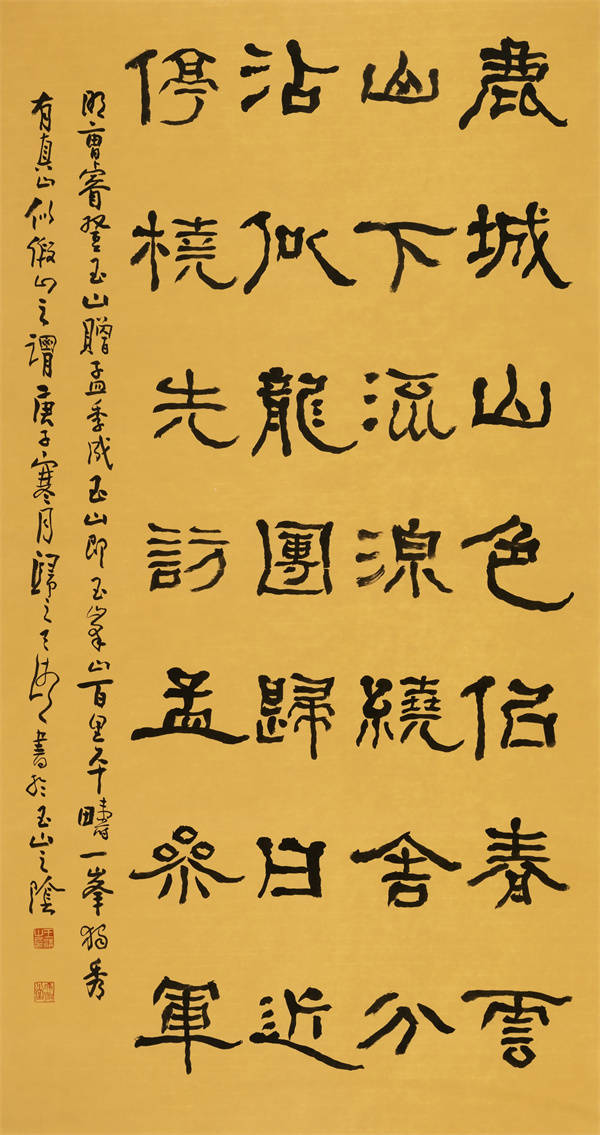 鹿城山色佀春雲
山下流湶繞舍分
沾似龍團歸日近
停橈先訪孟參軍
明曹睿登玉山贈孟季成玉山即玉峯山百里平疇一峯獨秀
有真山似假山之謂庚子寒月歸之王書於玉山之陰